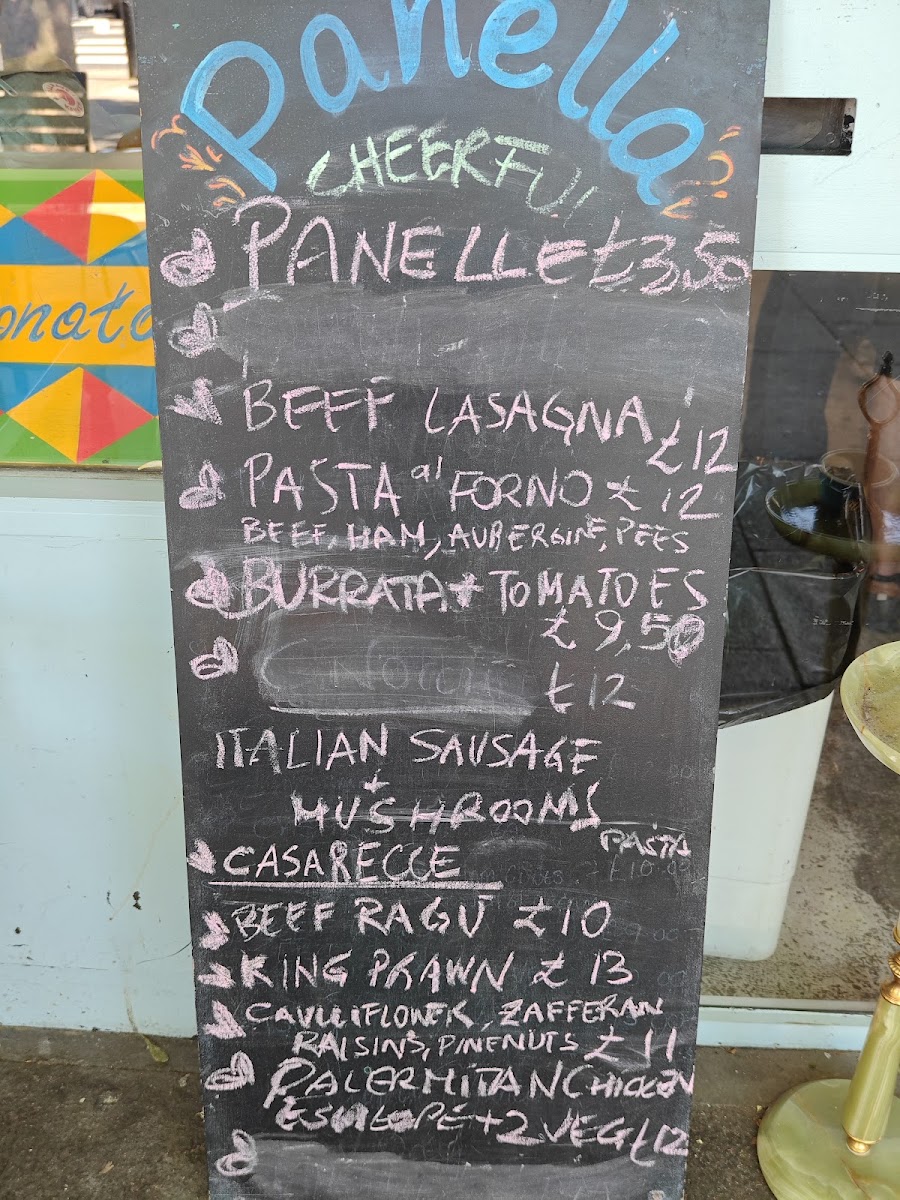 Panella
CHEERFUL
PANELLE £3,50
BEEF LASAGNA
£12
PASTA al FORNO £12
BEEF, HAM, AUBERGINE, PEES
BURRATA + TOMATOES
£9,50
£12
ITALIAN SAUSAGE
+
MUSHROOMS
PASTA
CASARECCE
BEEF RAGÙ £10
KING PRAWN £13
CAULIFLOWER, ZAFFERAN
RAISINS, PINENUTS £11
PALERMITAN CHICKEN
ESCALOPE + 2 VEG £12
onato